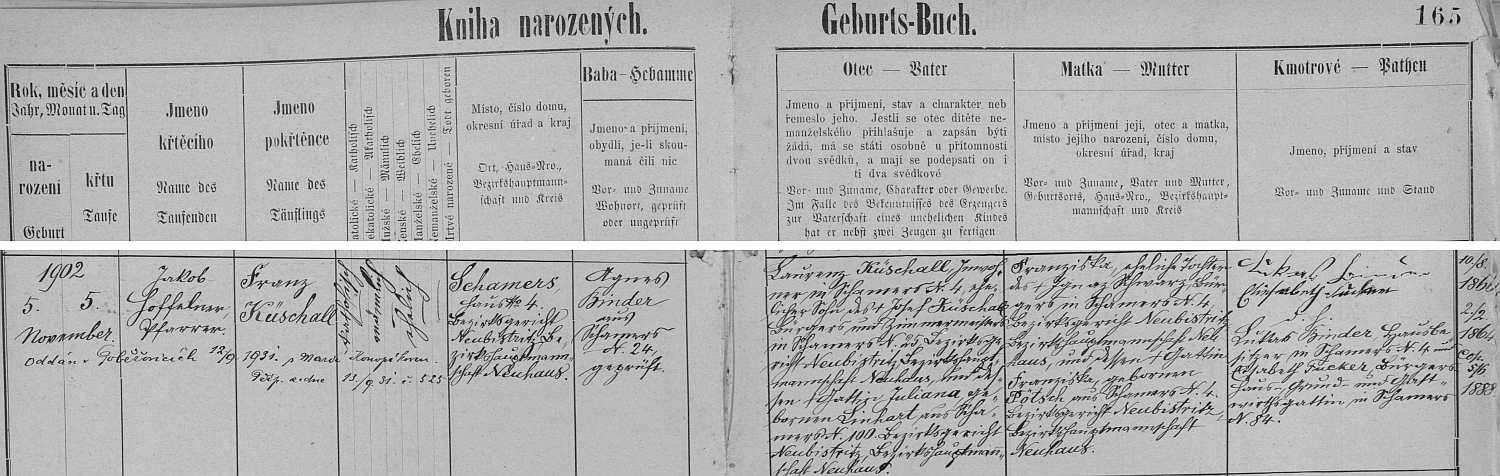 Kniha narozených.
Geburts-Buch.
165
Rok, měsíc a den
Jahr, Monat u. Tag
na-
rození
Geburt
křtu
Taufe
Jmeno
křtěcího
Name des
Taufenden
Jmeno
pokřtěnce
Name des
Täuflings
atolické — Katholisch
ekatolické — Akatholisch
Mužské — Männlich
Ženské — Weiblich
Manželské — Ehelich
Nemanželské — Unehelich
Mrtvé narozené — Todt geboren
Místo, číslo domu,
okresní úřad a kraj
Ort, Haus-Nro.,
Bezirkshauptmann-
schaft und Kreis
Baba-Hebamme
Jmeno a přijmení,
obydlí, je-li skou-
maná čili nic
Vor- und Zuname
Wohnort, geprüft
oder ungeprüft
Otec — Vater
Jmeno a příjmení, stav a charakter neb
řemeslo jeho. Jestli se otec dítěte ne-
manželského přihlašuje a zapsán býti
žádá, má se státi osobně u přítomnosti
dvou svědků, a mají se podepsati on i
ti dva svědkové
Vor- und Zuname, Charakter oder Gewerbe.
Im Falle des Bekenntnisses des Erzeugers
zur Vaterschaft eines unehelichen Kindes
hat er nebst zwei Zeugen zu fertigen
Matka — Mutter
Jmeno a příjmení její, otec a matka,
místo jejího narození, číslo domu,
okresní úřad, kraj
Vor- und Zuname, Vater und Mutter,
Geburtsorts, Haus-Nro., Bezirkshaupt-
mannschaft und Kreis
Kmotrové — Pathen
Jmeno, příjmení a stav
Vor- und Zuname und Stand
1902
5. 5.
November.
Jakob
Höffelner,
Pfarrer.
Franz
Küschall
katholisch
männlich
ehelich
Schamers
Haus № 4.
Bezirksgericht
Neubistritz, Be-
zirkshauptmann-
schaft Neuhaus.
Agnes
Binder
aus
Schamers
N. 24,
geprüft.
oddán v 12/9
1931. s Marií
13./9. 31. č. 525
Laurenz Küschall, Inwoh-
ner in Schamers N. 4, ehe-
licher Sohn des † Josef Küschall
Bürgers und Zimmermeisters
in Schamers N. 25, Bezirksge-
richt Neubistritz Bezirkshaupt-
mannschaft Neuhaus, und des-
sen † Gattin Juliana, ge-
bornen Linhart aus Scha-
mers N. 100. Bezirksgericht
Neubistritz Bezirkshauptmann-
schaft Neuhaus.
Franziska, eheliche Tochter
des † Ignaz Schwarz, Bür-
gers in Schamers N. 4,
Bezirksgericht Neubistritz
Bezirkshauptmannschaft Neu-
haus, und dessen † Gattin
Franziska, gebornen
Pötsch aus Schamers N. 4.
Bezirksgericht Neubistritz
Bezirkshauptmannschaft
Neuhaus.
Lukas Binder
Elisabeth Fucker
Lukas Binder, Hausbe-
sitzer in Schamers N. 4 und
Elisabeth Fucker, Bürgers
Haus- Grund- und Gast-
wirthsgattin in Schamers
N. 84.
10/8
1861
2/2
1864
Cop.
5/6
1888